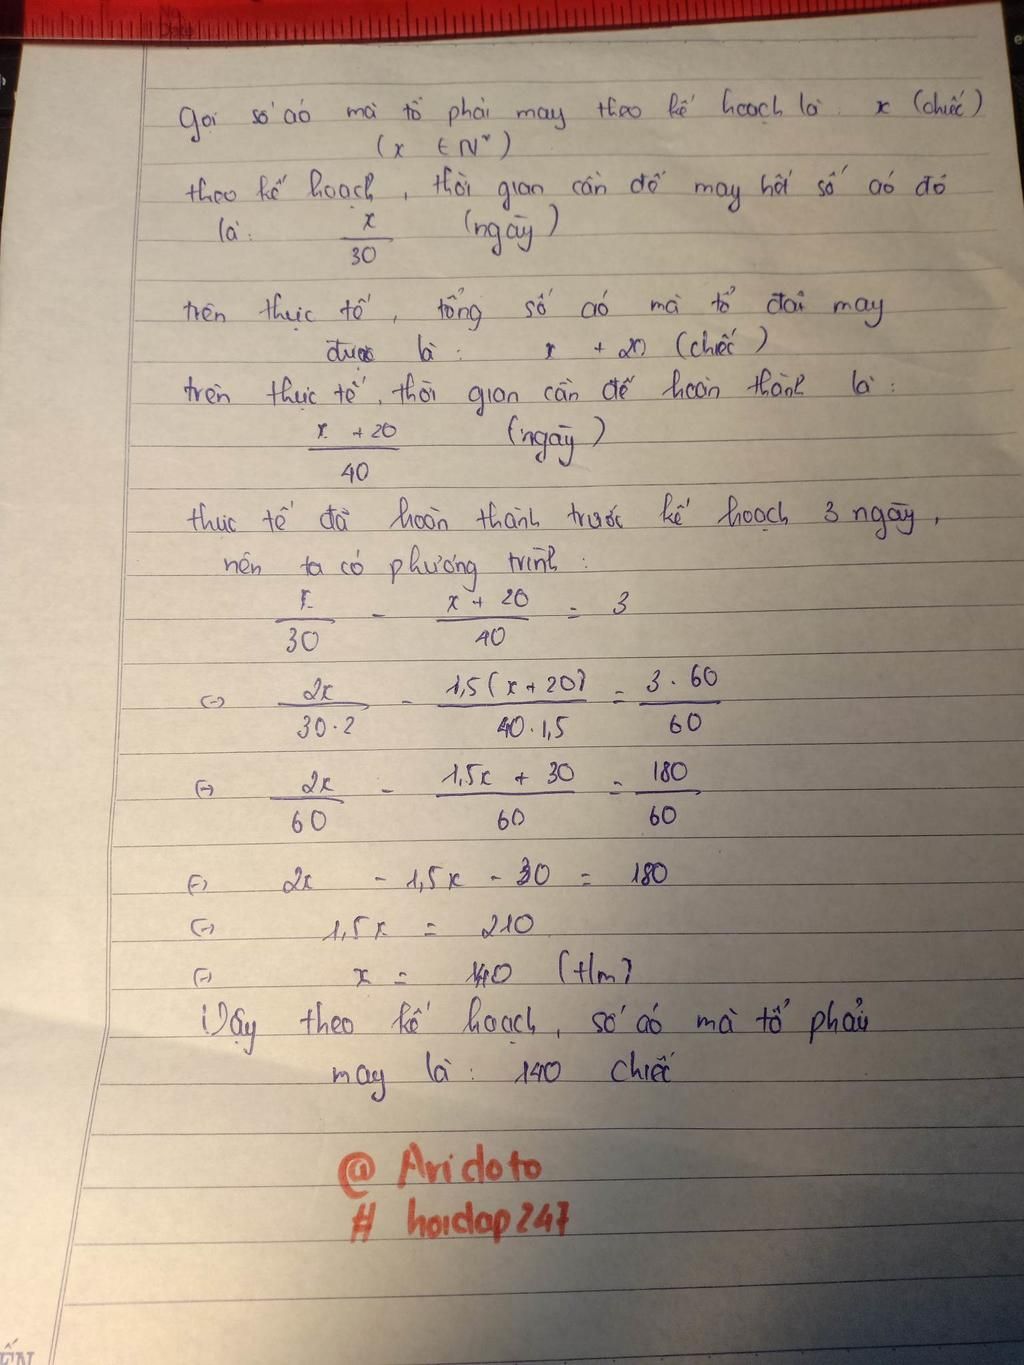 No.
Date
Gọi số áo mà tổ phải may theo kế hoạch là: x (chiếc)
(x ∈ N*)
theo kế hoạch, thời gian cần để may hết số áo đó
là: x/30 (ngày)
trên thực tế, tổng số áo mà tổ đã may
được là: x + 20 (chiếc)
trên thực tế, thời gian cần để hoàn thành là:
(x + 20)/40 (ngày)
thực tế đã hoàn thành trước kế hoạch 3 ngày,
nên ta có phương trình:
x/30 - (x + 20)/40 = 3
(-) 2x/(30·2) - 1,5(x + 20)/(40·1,5) = (3·60)/60
(-) 2x/60 - (1,5x + 30)/60 = 180/60
(-) 2x - 1,5x - 30 = 180
(-) 1,5x = 210
(-) x = 140 (t/m)
Vậy theo kế hoạch, số áo mà tổ phải
may là: 140 chiếc
@ Aridoto
# hoidap247
ẾN